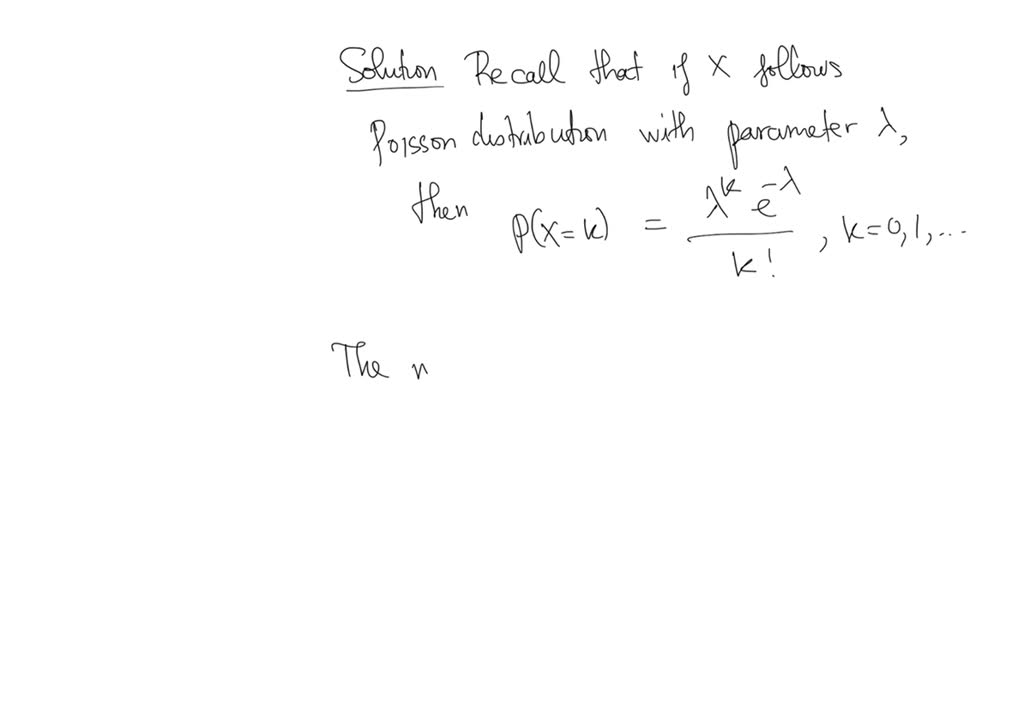 Solution Recall that if X follows
Poisson distribution with parameter λ,
then P(X=k) = λ^k e^-λ / k! , k=0,1,...
The n